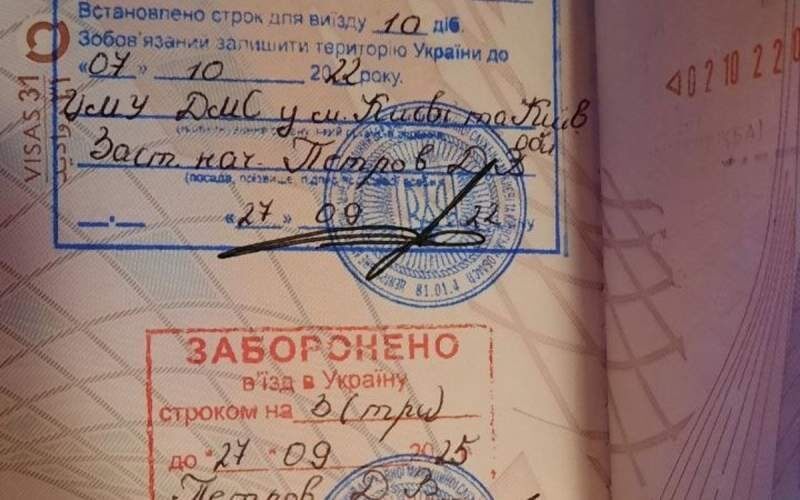 Встановлено строк для виїзду 10 діб.
Зобов'язаний залишити територію України до
«07» 10 2022 року.
УМУ ДМС у м. Києві та Київ
ській
Заст. нач. Петров Д.В
(посада, прізвище, підпис
«27» 09 22
81.01.4
VISAS 31
0210220
ЗАБОРОНЕНО
в'їзд в Україну
строком на 3 (три)
до "27" 09 2025
Петров Д В